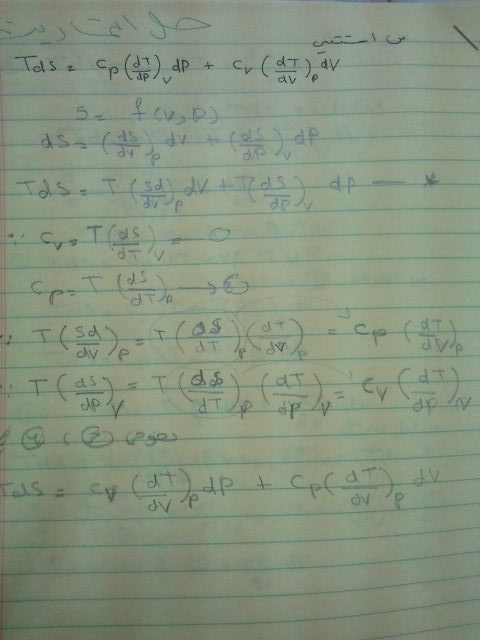 حل التمارين
س استنتجي
Tds = Cp(dT/dP)v dP + Cv(dT/dV)p dV
S = f(v, p)
ds = (ds/dv)p dv + (ds/dp)v dp
Tds = T(sd/dv)p dv + T(ds/dp)v dp — *
∵ Cv = T(ds/dT)v —
Cp = T(ds/dT)p →
∴ T(sd/dv)p = T(ds/dT)p (dT/dv)p = Cp (dT/dv)p
∵ T(ds/dp)v = T(ds/dT)p (dT/dp)v = Cv (dT/dp)v
نعوض
Tds = Cv (dT/dv)p dp + Cp(dT/dv)p dv